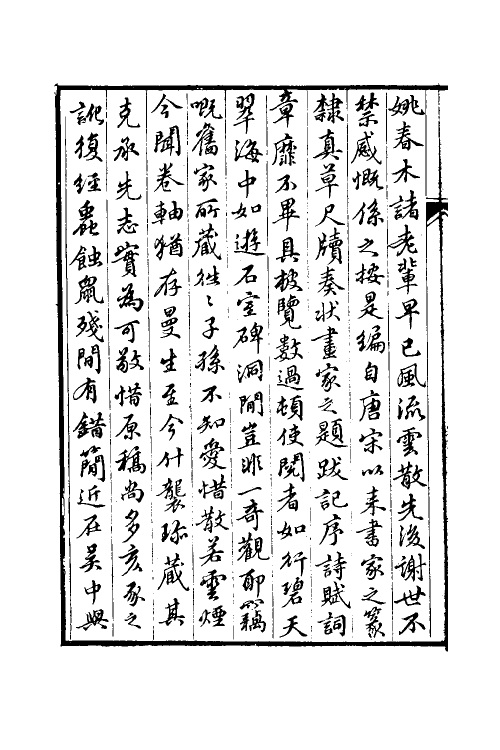 姚春木諸老輩早已風流雲散先後謝世不
禁感慨係之按是編自唐宋以来書家之篆
隸真草尺牘奏狀畫家之題跋記序詩賦詞
章靡不畢具披覽數過頓使閱者如行碧天
翠海中如遊石室碑洞間豈非一奇觀耶竊
嘅舊家所藏往〻子孫不知愛惜散若雲煙
今聞卷軸猶存曼生至今什襲珎藏其
克承先志實為可敬惜原稿尚多亥豕之
訛復經蟲蝕鼠殘間有錯簡近在吴中與